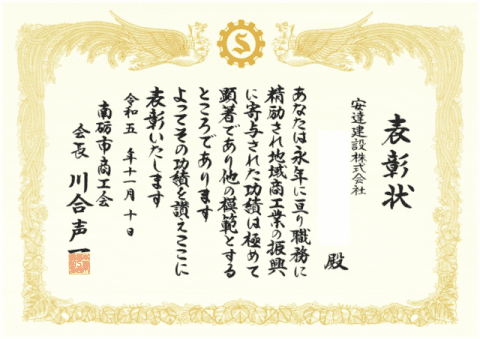 表彰状
安達建設株式会社
殿
あなたは永年に亘り職務に
精励され地域商工業の振興
に寄与された功績は極めて
顕著であり他の模範とする
ところであります
よってその功績を讃えここに
表彰いたします
令和五年十一月十日
南砺市商工会
会長 川合声一